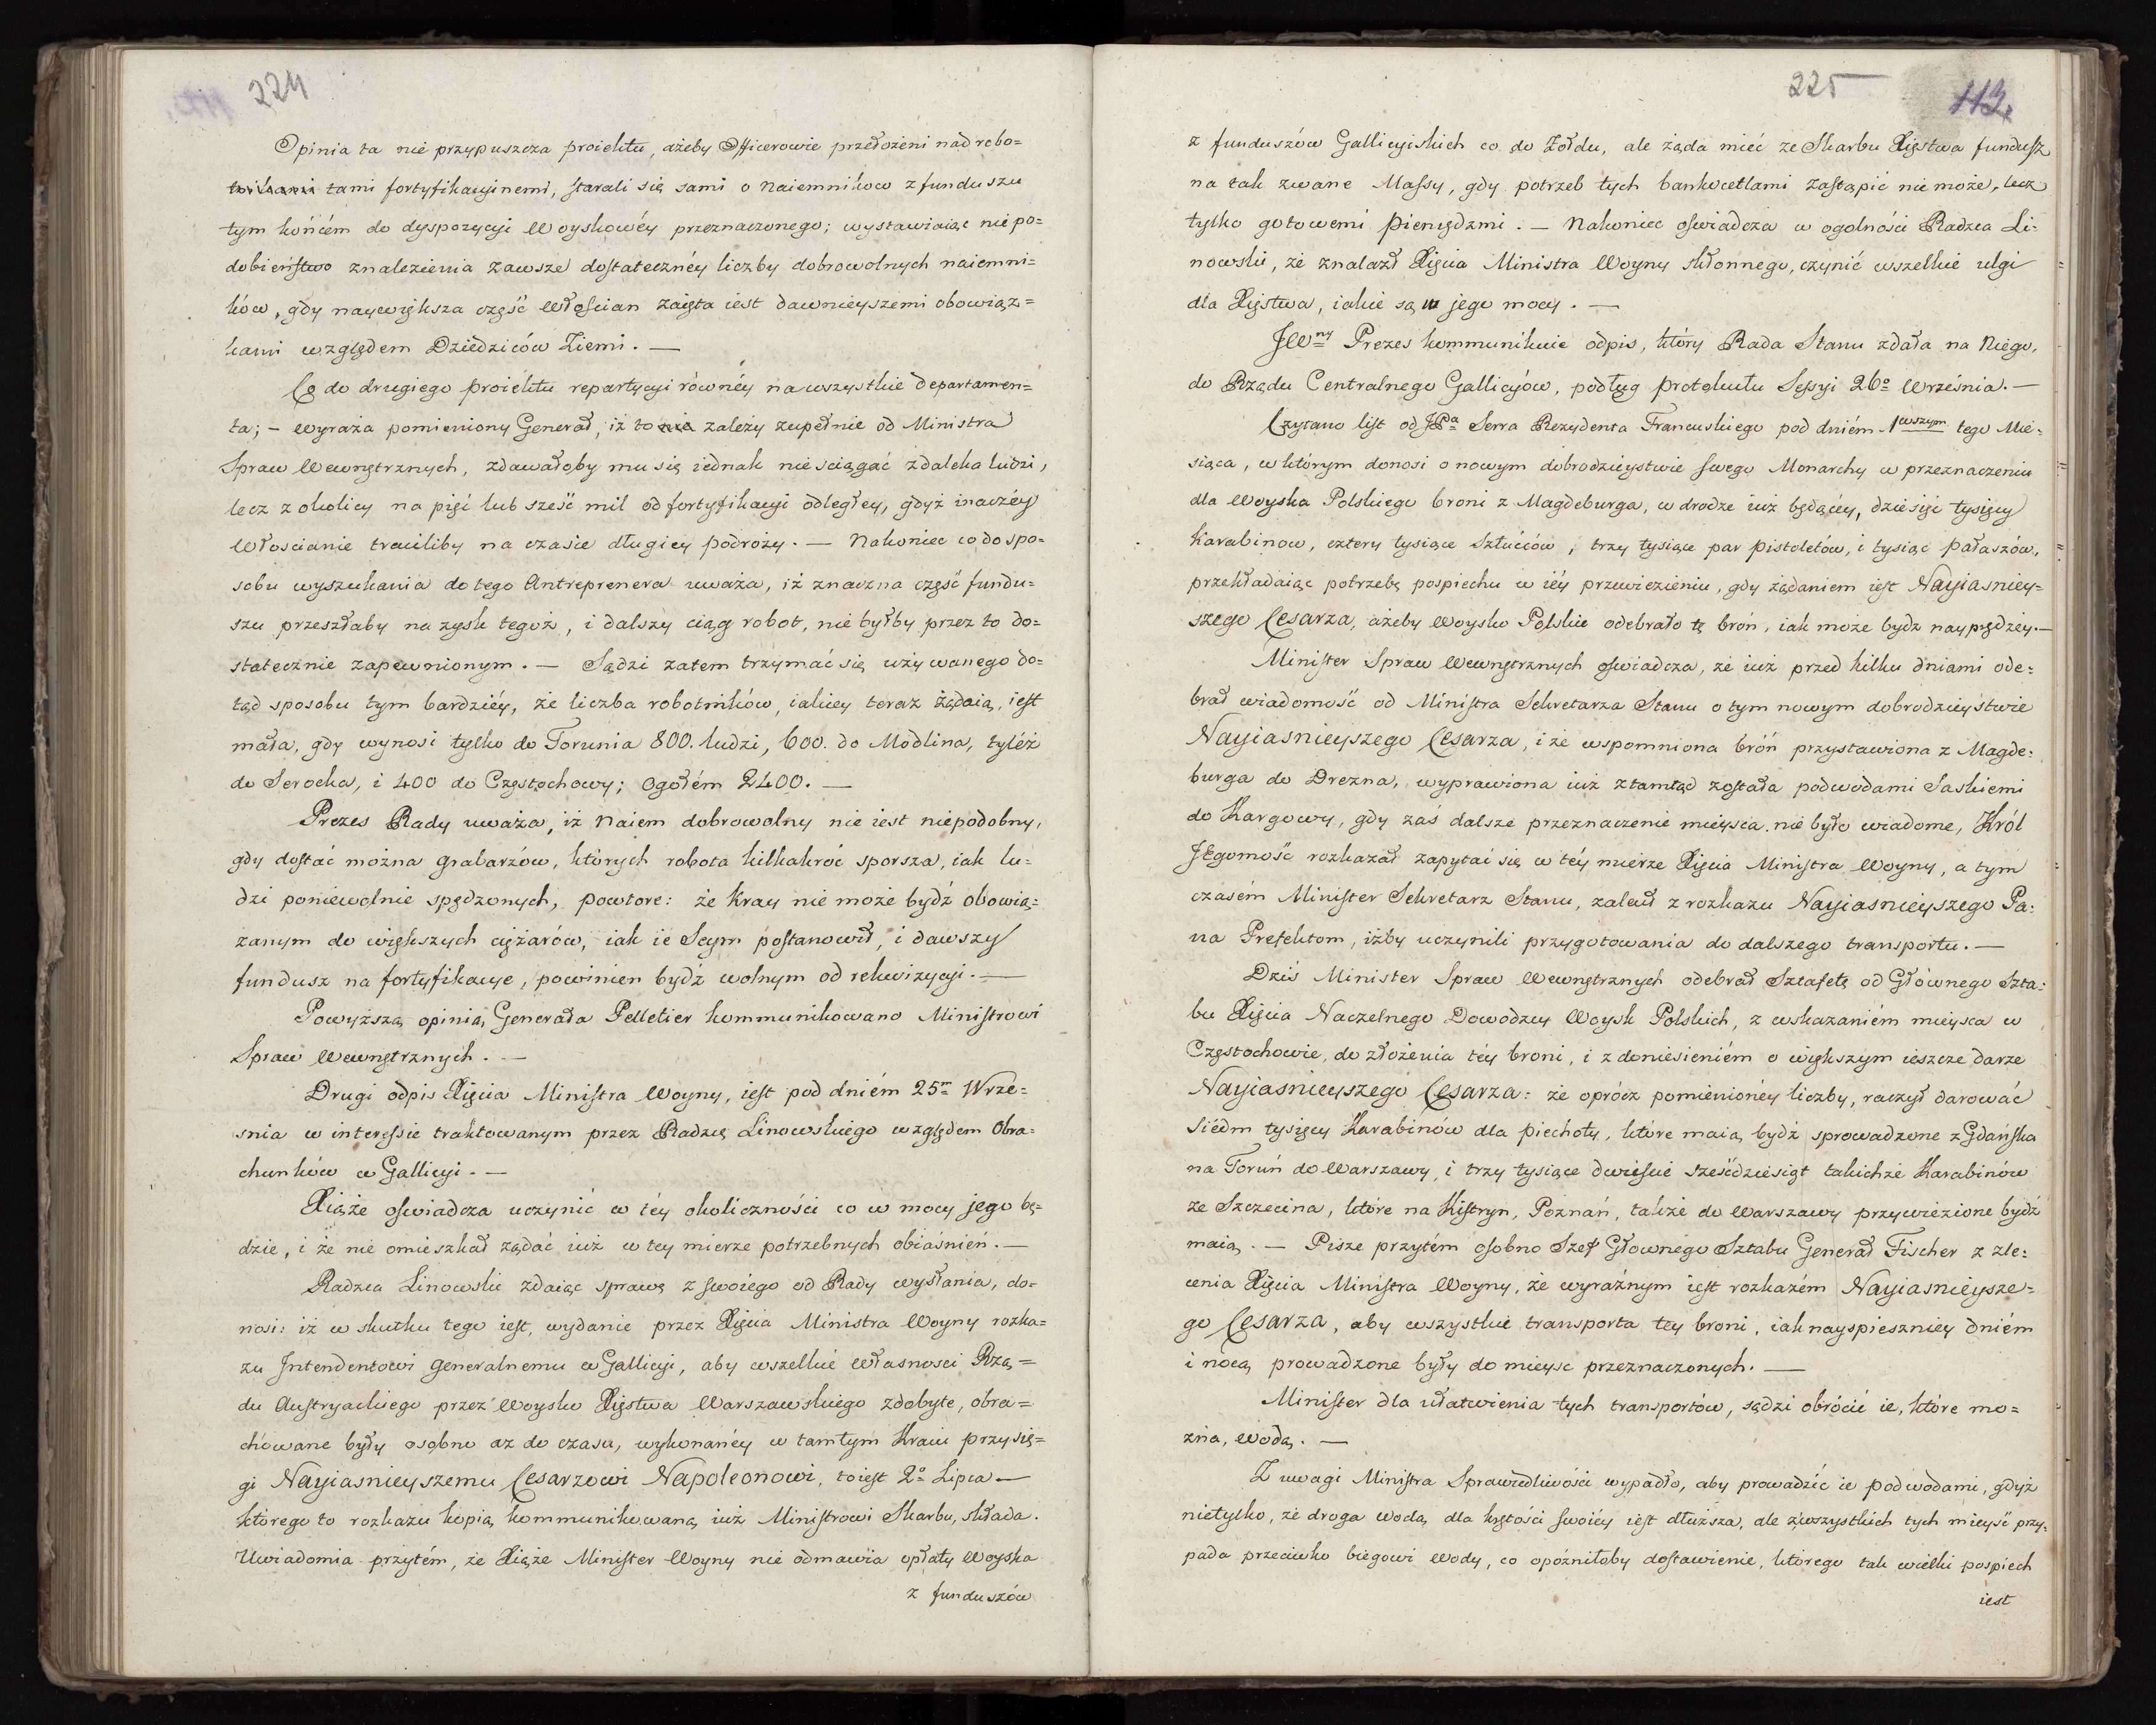 224
Opinia ta nie przypuszcza proiektu, ażeby Officerowie przełożeni nad robo=
tnikami tami fortyfikacyinemi, starali się sami o naiemnikow z funduszu
tym końcém do dyspozycyi Woyskowéy przeznaczonego; wystawiaiąc niepo=
dobieństwo znalezienia zawsze dostatecznéy liczby dobrowolnych naiemni=
ków, gdy naywiększa część Włościan zaięta iest dawnieyszemi obowiąz=
kami względem Dziedziców Ziemi. —
Co do drugiego proiektu repartycyi równéy na wszystkie Departamen=
ta; – wyraża pomieniony Generał, iż to nie zależy zupełnie od Ministra
Spraw Wewnętrznych, zdawałoby mu się iednak nie sciągać zdaleka ludzi,
lecz z okolicy na pięć lub sześć mil od fortyfikacyi odległey, gdyż inaczéy
Włoscianie traciliby na czasie długiey podroży. — Nakoniec co do spo=
sobu wyszukania do tego Antreprenera uważa, iż znaczna część fundu=
szu przeszłaby na zysk tegoż, i dalszy ciąg robot, nie byłby przez to do=
statecznie zapewnionym. — Sądzi zatem trzymać się używanego do=
tąd sposobu tym bardziéy, że liczba robotników, iakiey teraz żądaią, iest
mała, gdy wynosi tylko do Torunia 800. ludzi, 600. do Modlina, tyleż
do Serocka, i 400 do Częstochowy; ogołém 2400. —
Prezes Rady uważa, iż naiem dobrowolny nie iest niepodobny,
gdy dostać można grabarzów, których robota kilkakroć sporsza, iak lu=
dzi poniewolnie spędzonych, powtore: że Kray nie może bydź obowią=
zanym do większych ciężarów, iak ie Seym postanowił, i dawszy
fundusz na fortyfikacye, powinien bydź wolnym od rekwizycyi. —
Powyższą opinią Generała Pelletier kommunikowano Ministrowi
Spraw Wewnętrznych. —
Drugi odpis Xięcia Ministra Woyny, iest pod dniém 25m Wrze=
snia w interessie traktowanym przez Radzcę Linowskiego względem Obra=
chunków w Gallicyi. —
Xiąże oswiadcza uczynić w téy okoliczności co w mocy jego bę=
dzie, i że nie omieszkał żądać iuż w tey mierze potrzebnych obiaśnień. —
Radzca Linowski zdaiąc sprawę z swoiego od Rady wysłania, do=
nosi: iż w skutku tego iest, wydanie przez Xięcia Ministra Woyny rozka=
zu Intendentowi generalnemu w Gallicyi, aby wszelkie własnosci Rzą=
du Austryackiego przez Woysko Xięstwa Warszawskiego zdobyte, obra=
chowane były osobno aż do czasu, wykonanéy w tamtym Kraiu przysię=
gi Nayiasnieyszemu Cesarzowi Napoleonowi, toiest 2o Lipca —
którego to rozkazu kopią kommunikowaną iuż Ministrowi Skarbu, składa.
Uwiadomia przytém, że Xiąże Minister Woyny nie odmawia opłaty Woyska
z funduszów
225
113.
z funduszów Gallicyiskich co do Żołdu, ale żąda mieć ze Skarbu Xięstwa fundusz
na tak zwane Massy, gdy potrzeb tych bankocetlami zastąpić nie może, lecz
tylko gotowemi pieniędzmi. — Nakoniec oswiadcza w ogolności Radzca Li=
nowski, że znalazł Xięcia Ministra Woyny skłonnego, czynić wszelkie ulgi
dla Xięstwa, iakie są w jego mocy. —
JWny Prezes kommunikuie odpis, który Rada Stanu zdała na Niego,
do Rządu Centralnego Gallicyów, podług protokułu Sessyi 26o Września. —
Czytano list od JPa Serra Rezydenta Francuskiego pod dniém 1wszym tego Mie=
siąca, w którym donosi o nowym dobrodzieystwie swego Monarchy w przeznaczeniu
dla Woyska Polskiego broni z Magdeburga, w drodze iuż będącéy, dziesięć tysięcy
Karabinow, cztery tysiące Sztućców, trzy tysiące par pistoletów, i tysiąc pałaszów,
przekładaiąc potrzebę pospiechu w iéy przewiezieniu, gdy żądaniem iest Nayiasniey=
szego Cesarza, ażeby Woysko Polskie odebrało tę broń, iak może bydź nayprędzey. —
Minister Spraw Wewnętrznych oswiadcza, że iuż przed kilku dniami ode=
brał wiadomość od Ministra Sekretarza Stanu o tym nowym dobrodzieystwie
Nayiasnieyszego Cesarza, i że wspomniona broń przystawiona z Magde=
burga do Drezna, wyprawiona iuż ztamtąd została podwodami Saskiemi
do Kargowy, gdy zaś dalsze przeznaczenie mieysca nie było wiadome, Król
JEgomość rozkazał zapytać się w téy mierze Xięcia Ministra Woyny, a tym
czasém Minister Sekretarz Stanu, zalecił z rozkazu Nayiasnieyszego Pa=
na Prefektom, iżby uczynili przygotowania do dalszego transportu. —
Dziś Minister Spraw Wewnętrznych odebrał Sztafetę od Głównego Szta=
bu Xięcia Naczelnego Dowodzcy Woysk Polskich, z wskazaniém mieysca w
Częstochowie, do złożenia téy broni, i z doniesieniém o większym ieszcze darze
Nayiasnieyszego Cesarza: że oprócz pomienionéy liczby, raczył darować
siedm tysięcy Karabinów dla piechoty, które maią bydź sprowadzone z Gdańska
na Toruń do Warszawy, i trzy tysiące dwieście sześćdziesiąt takichże Karabinów
ze Szczecina, które na Kistryn, Poznań, także do Warszawy przywiezione bydź
maią. — Pisze przytém osobno Szef Głownego Sztabu Generał Fischer z zle=
cenia Xięcia Ministra Woyny, że wyraźnym iest rozkazém Nayiasnieysze=
go Cesarza, aby wszystkie transporta tey broni, iak nayspieszniey dniém
i nocą prowadzone były do mieysc przeznaczonych. —
Minister dla ułatwienia tych transportów, sądzi obrócić ie, które mo=
żna, wodą. —
Z uwagi Ministra Sprawiedliwości wypadło, aby prowadzić ie podwodami, gdyż
nietylko, że droga wodą dla krętości swoiéy iest dłuższa, ale z wszystkich tych mieysc przy=
pada przeciwko biegowi wody, co opoźniłoby dostawienie, którego tak wielki pospiech
iest